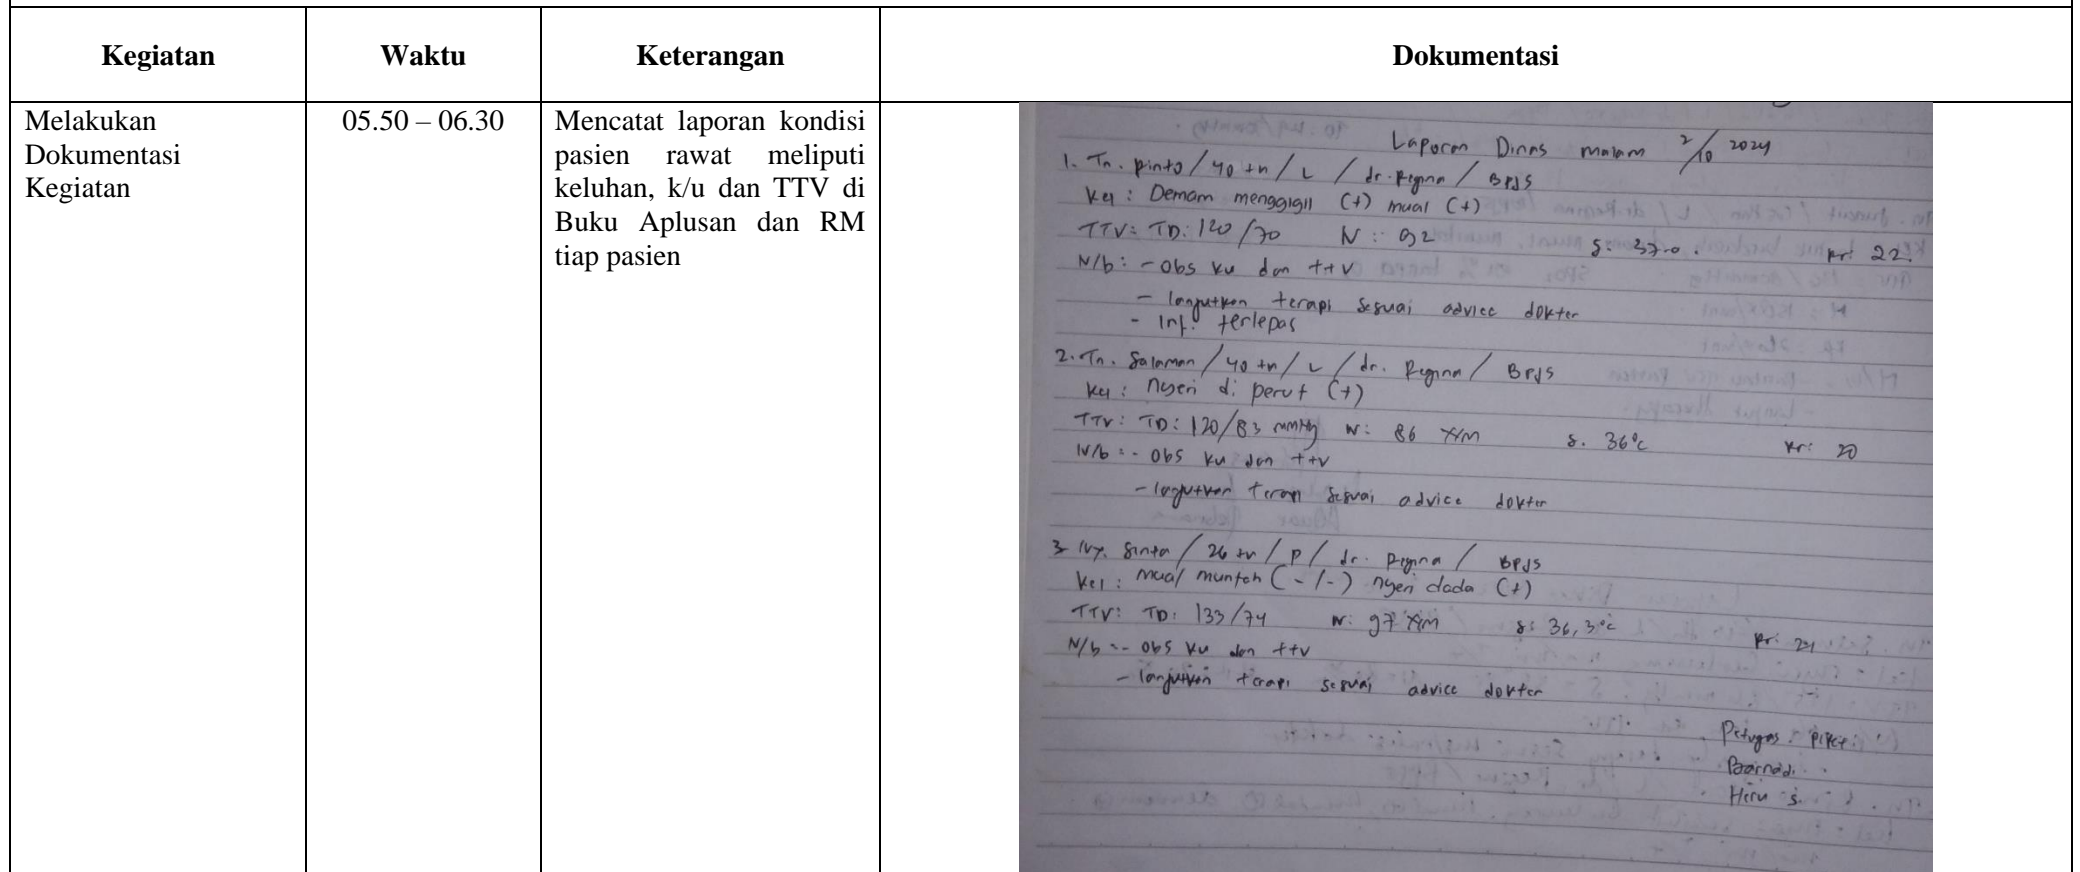 Kegiatan
Waktu
Keterangan
Dokumentasi
Melakukan
Dokumentasi
Kegiatan
05.50 – 06.30
Mencatat laporan kondisi
pasien rawat meliputi
keluhan, k/u dan TTV di
Buku Aplusan dan RM
tiap pasien
Laporan Dinas malam 2/10 2024
1. Tn. pinto / 40 tn / L / dr. Regina / BPJS
Kel : Demam menggigil (+) mual (+)
TTV: TD: 120/70 N : 92 S: 37.0. Rr: 22.
N/b: - obs ku dan ttv
- lanjutkan terapi sesuai advice dokter
- Inf. terlepas
2. Tn. Salaman / 40 tn / L / dr. Regina / BPJS
Kel : nyeri di perut (+)
TTV: TD: 120/83 mmHg N: 86 x/m S. 36°c Rr: 20
N/b : - obs ku dan ttv
- lanjutkan terapi sesuai advice dokter
3. Ny. Sinta / 26 tn / P / dr. Regina / BPJS
Kel : mual muntah (-/-) nyeri dada (+)
TTV: TD: 133/74 N: 97 x/m S: 36,3°c Rr: 21
N/b : - obs ku dan ttv
- lanjutkan terapi sesuai advice dokter
Petugas piket
Heru S.